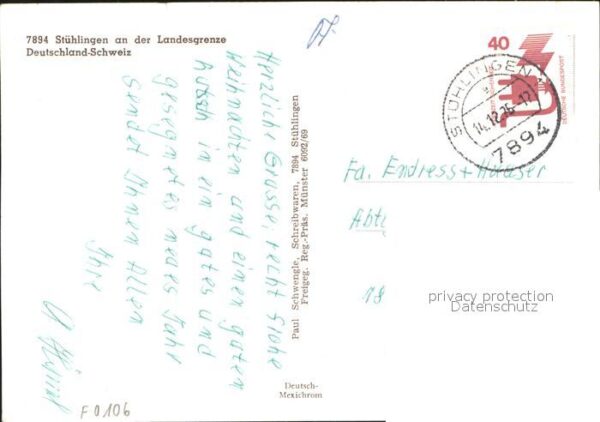 7894 Stühlingen an der Landesgrenze
Deutschland-Schweiz
Herzliche Grüsse, recht frohe
Weihnachten und einen guten
Rutsch in ein gutes und
gesegnetes neues Jahr
sendet Ihnen Allen
Ihre
F0106
Paul Schwengle, Schreibwaren, 7894 Stühlingen
Freigeg. Reg.-Präs. Münster 6092/69
Deutsch-
Mexichrom
40
DEUTSCHE BUNDESPOST
STÜHLINGEN
14.12.75-12
7894
Fa. Endress+Hauser
Abt
78
privacy protection
Datenschutz